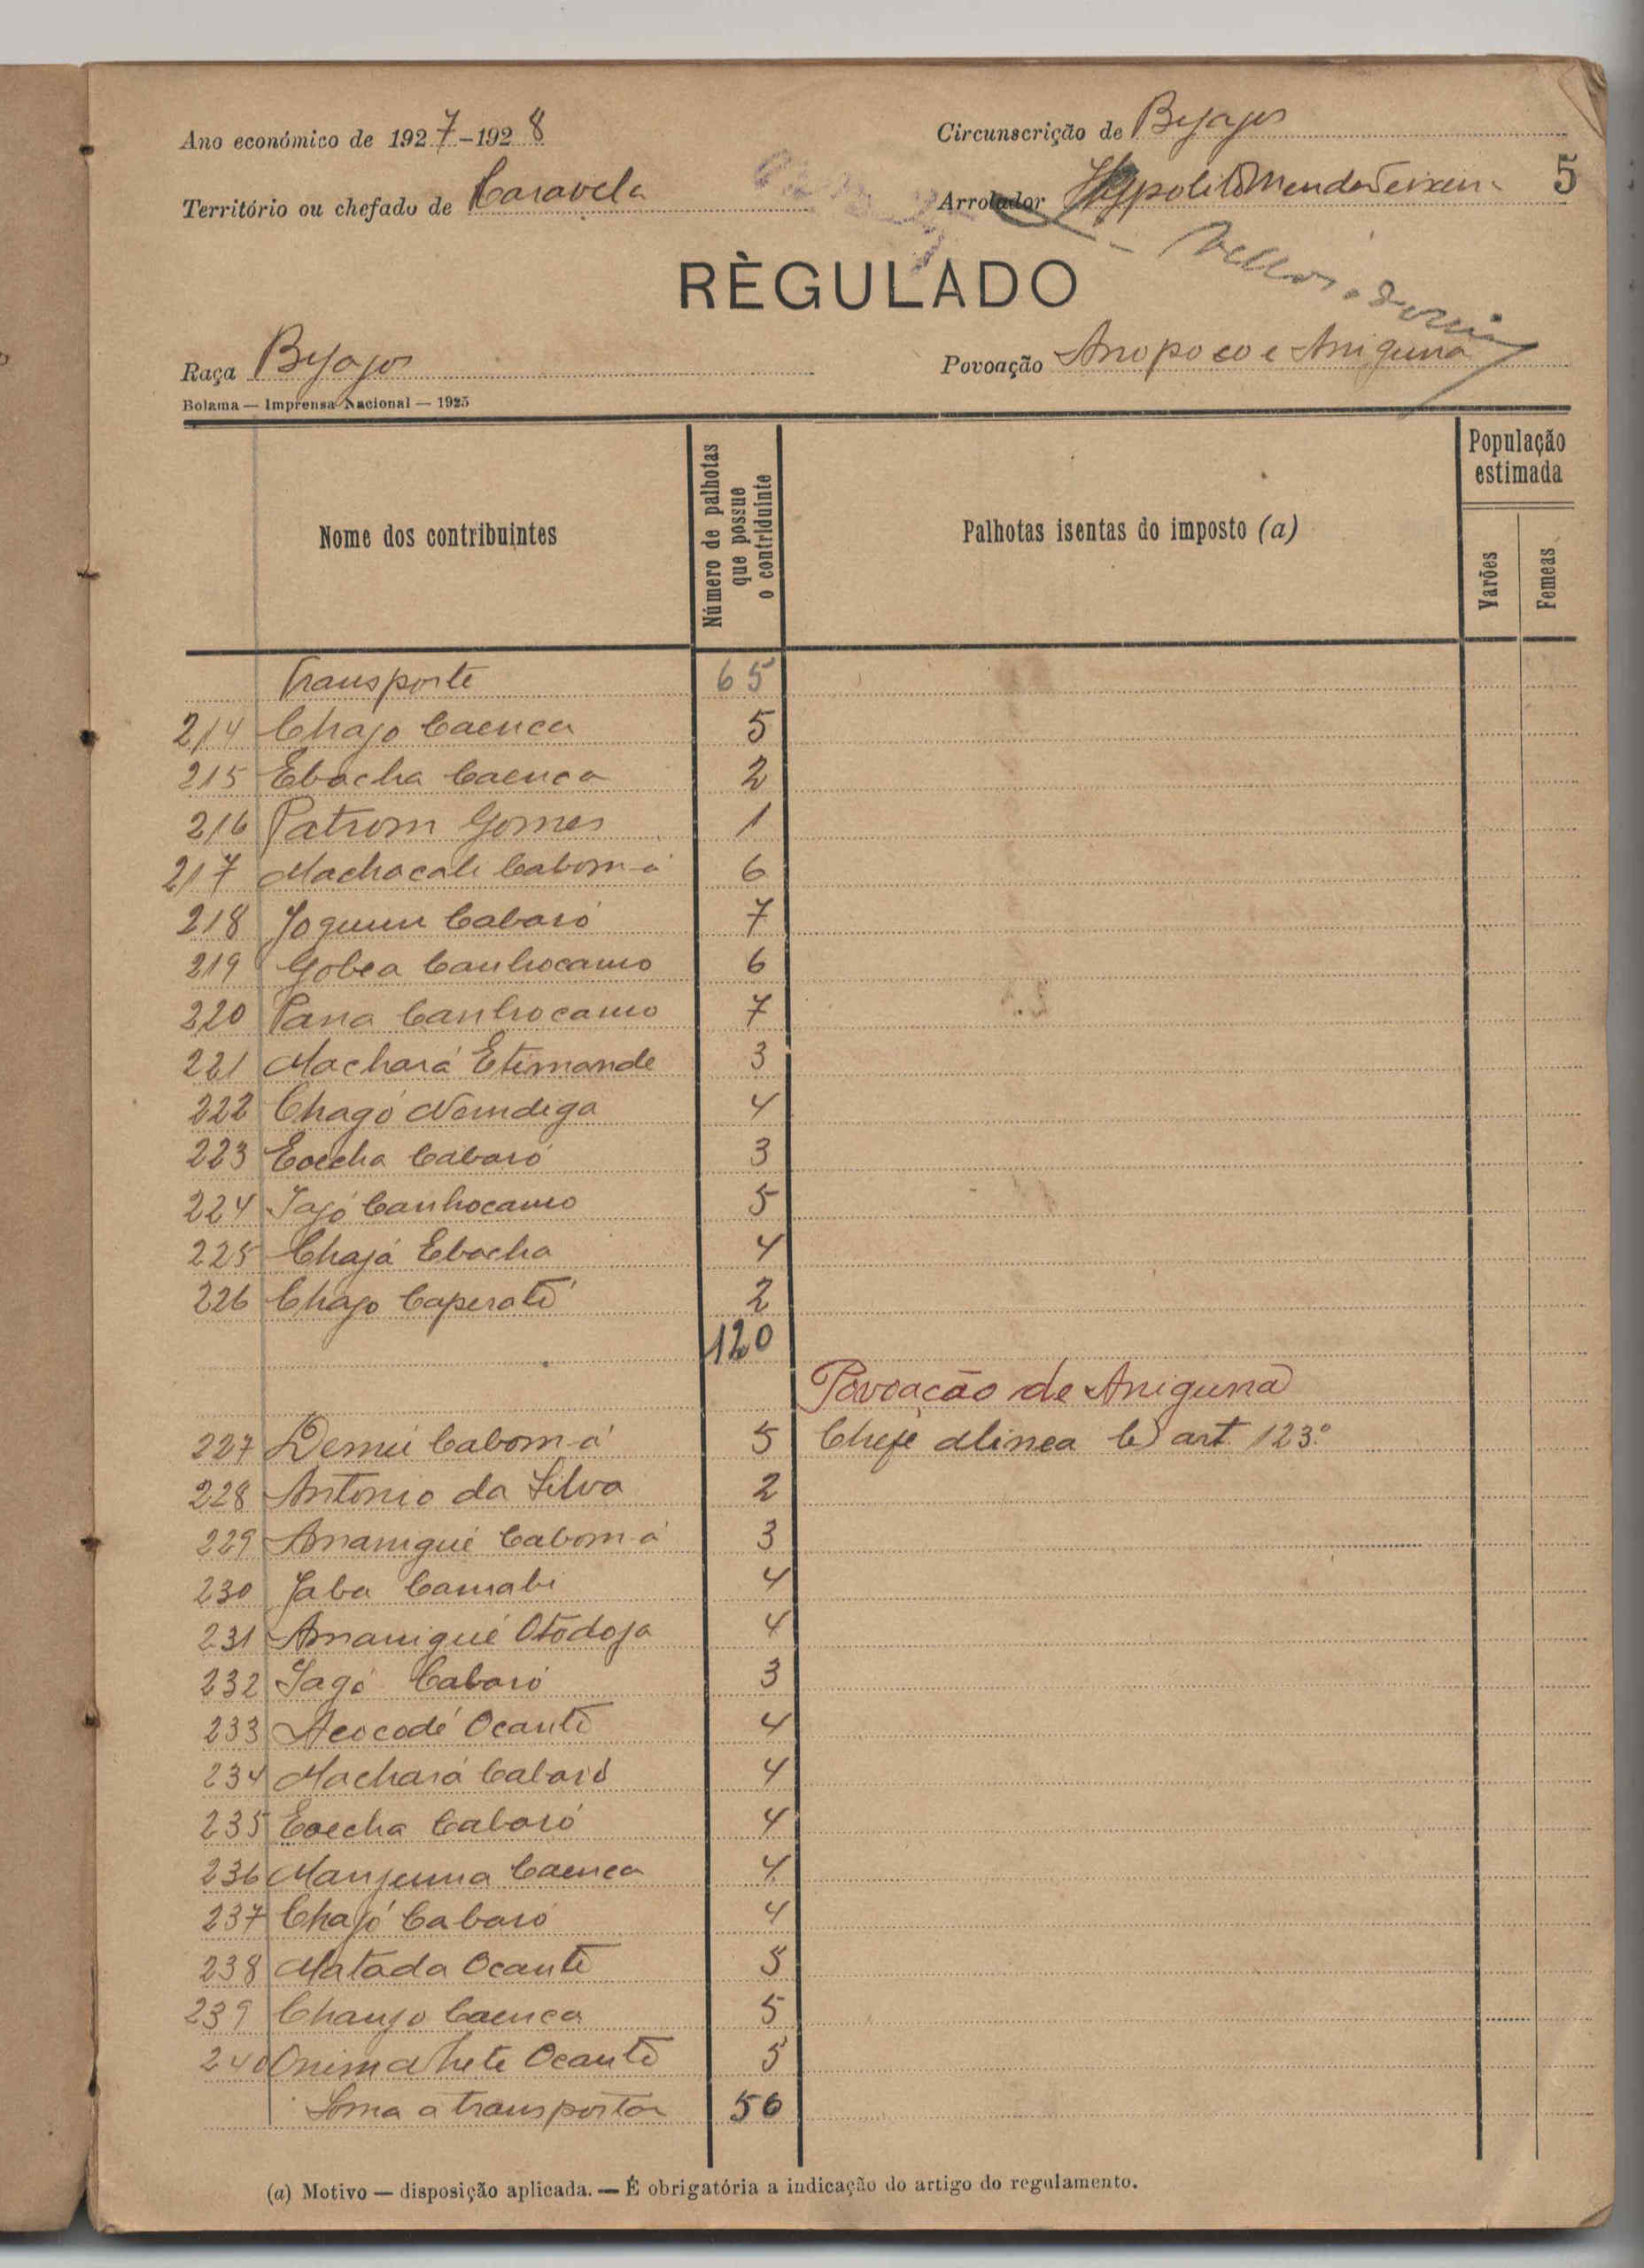 Ano económico de 1927-1928
Circunscrição de Byajos
5
Território ou chefado de Caravela
Arrolador Hyppolito Mendes Teixeira
RÈGULADO
Raça Byajos
Povoação Anopoco e Aniguná
Bolama — Imprensa Nacional — 1925
Nome dos contribuintes
Número de palhotas que possue o contriduinte
Palhotas isentas do imposto (a)
População estimada
Varões
Femeas
Transporte 65
214 Chajo Caenca 5
215 Ebacha Caenca 2
216 Patrom Gomes 1
217 Machacali Cabom-á 6
218 Joquim Cabaró 7
219 Gobea Canhocamo 6
220 Pana Canhocamo 7
221 Machará Etimande 3
222 Chagó Nomdiga 4
223 Eoecha Cabaró 3
224 Jajó Canhocamo 5
225 Chajá Ebacha 4
226 Chajo Caperaté 2
120
Povoação de Aniguná
227 Demú Cabom-á 5 Chefe alinea b) art. 123º
228 Antonio da Silva 2
229 Ananigué Cabom-á 3
230 Jaba Camabi 4
231 Amanigué Otodoja 4
232 Jagó Cabaró 3
233 Acocodé Ocanté 4
234 Machará Cabaró 4
235 Eoecha Cabaró 4
236 Manjuma Caenca 4
237 Chajó Cabaró 4
238 Matada Ocanté 5
239 Chanjo Caenca 5
240 Ocanté 5
Soma a transportar 56
(a) Motivo — disposição aplicada. — É obrigatória a indicação do artigo do regulamento.